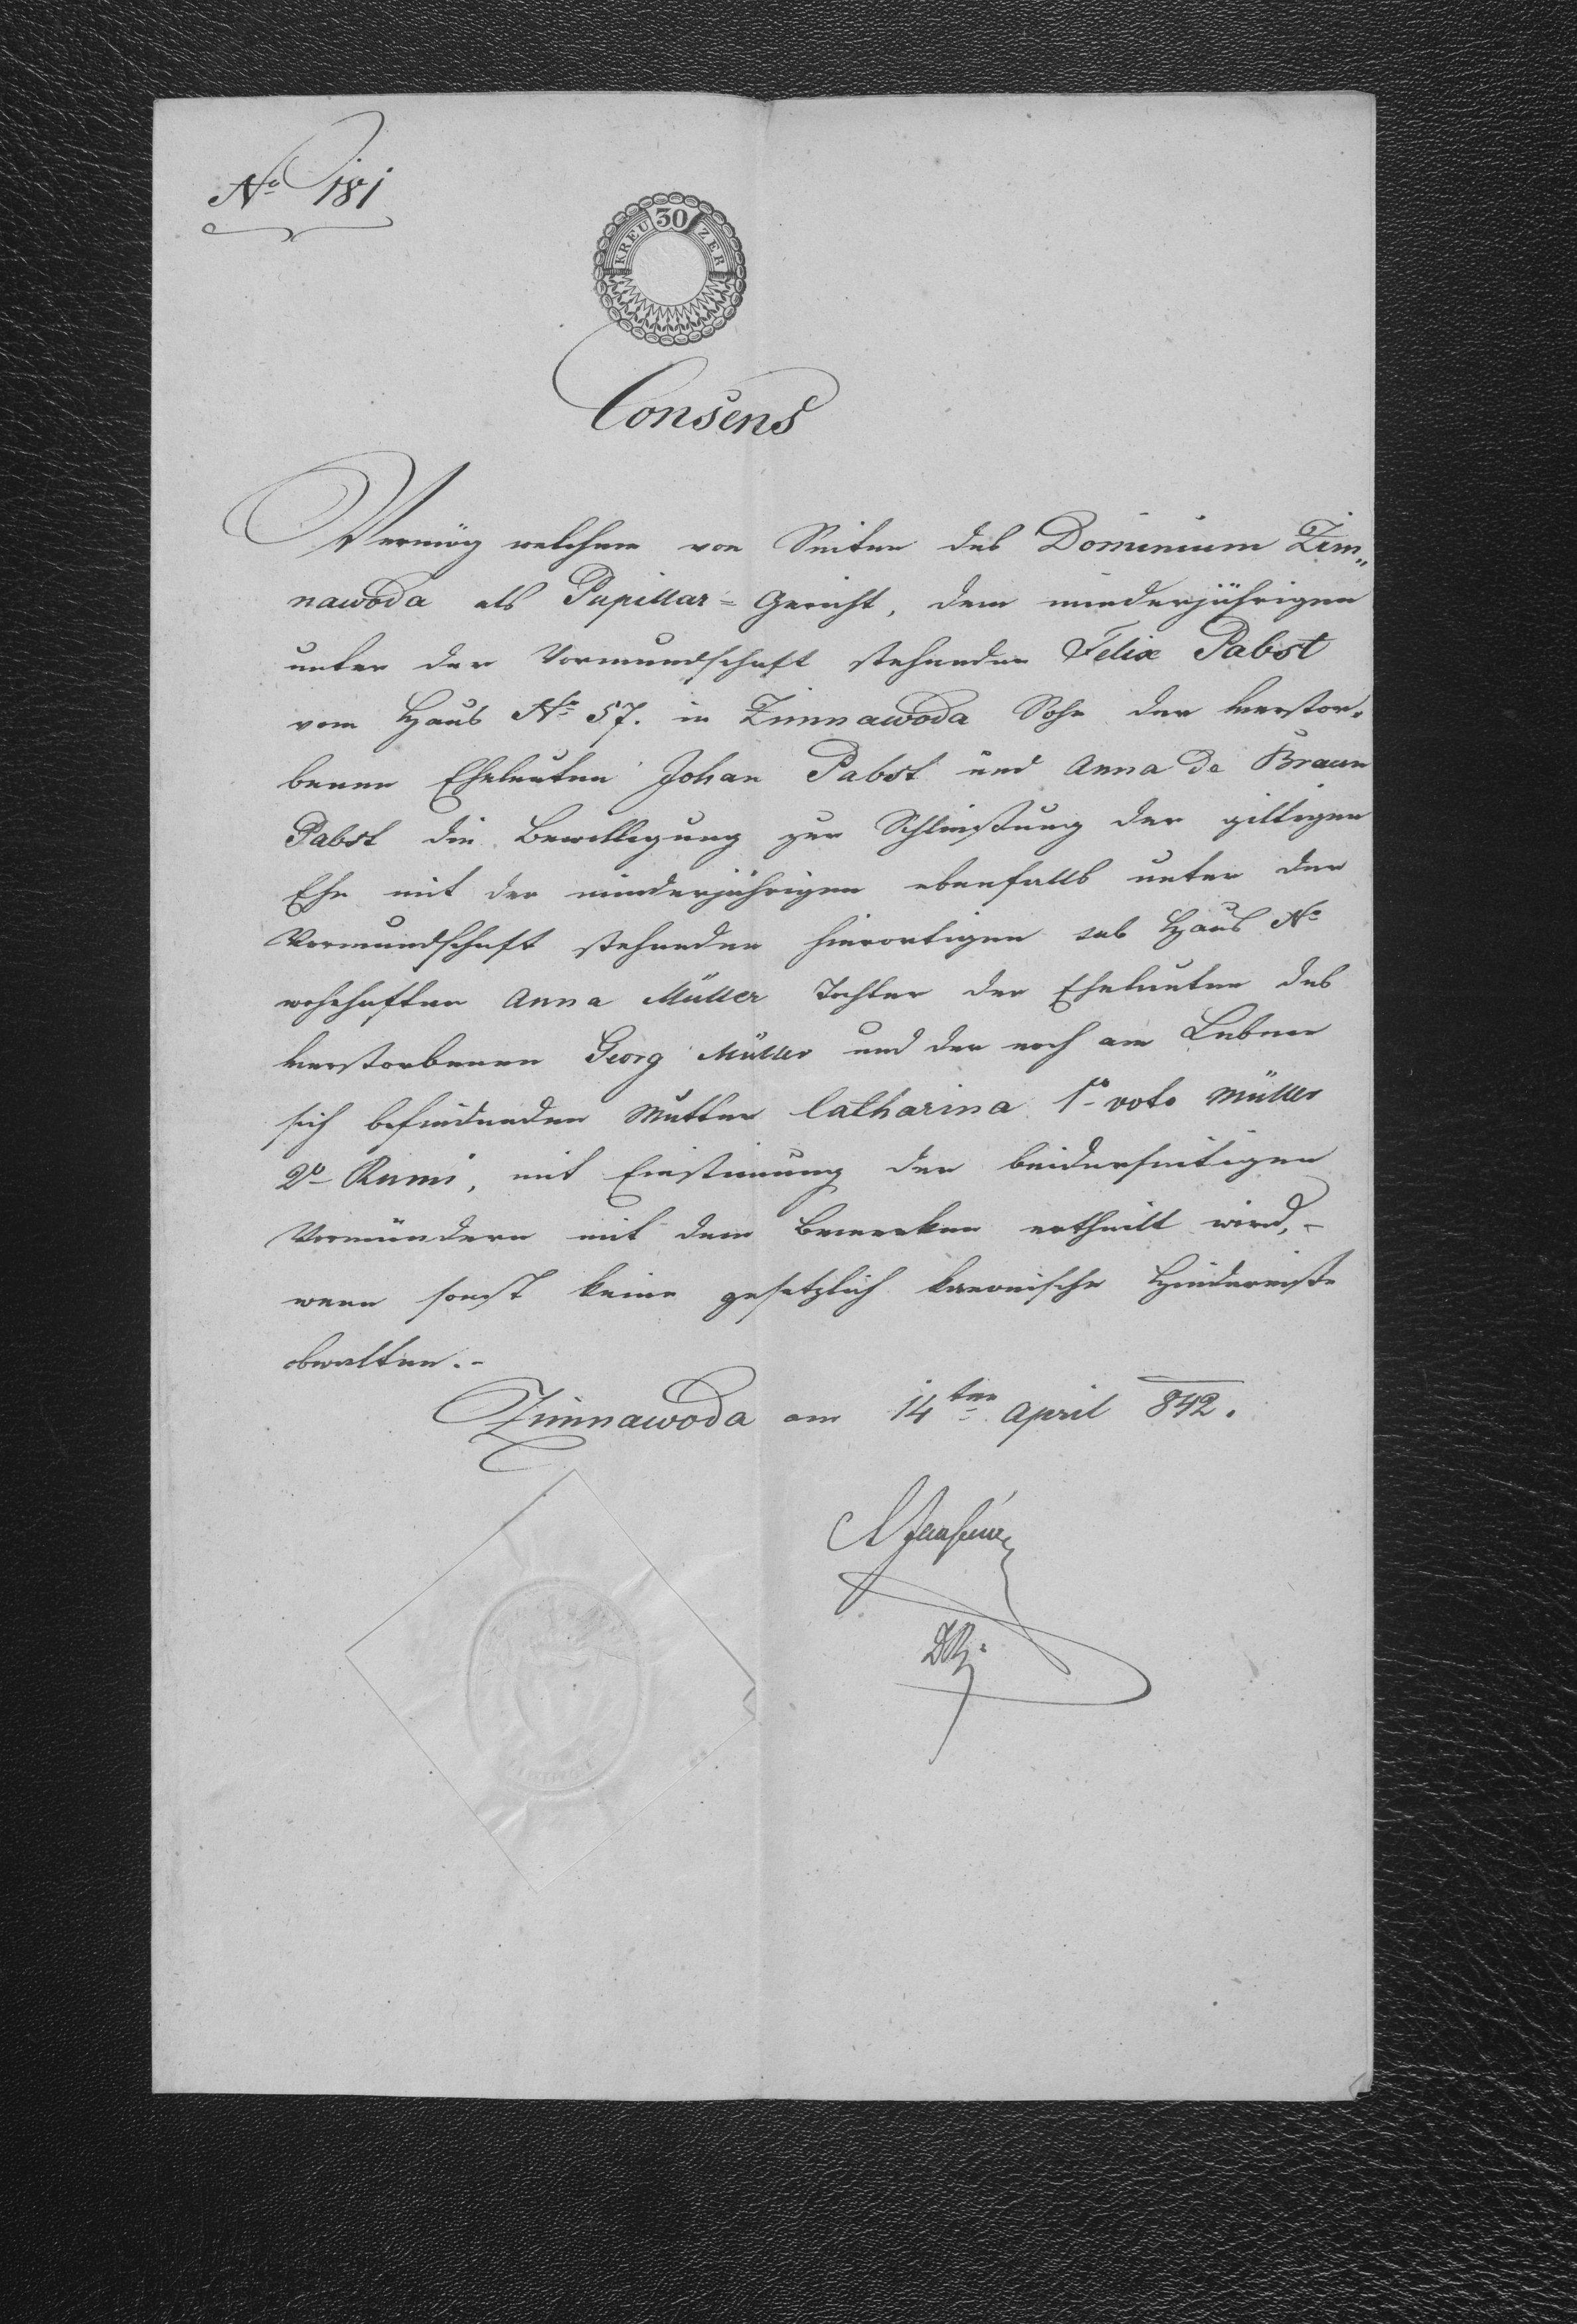 No 181
30
KREUZER
Consens
Vermög welchem von Seiten des Dominium Zim„
nawoda als Pupillar= Gericht, dem minderjährigen
unter der Vormundschaft stehenden Felix Pabst
vom Haus No 57. in Zimnawoda Sohn der verstor=
benen Eheleuten Johan Pabst und Anna de Braun
Pabst die Bewilligung zur Schließung der giltigen
Ehe mit der minderjährigen ebenfalls unter der
Vormundschaft stehenden hierortigen sub Haus No
wohnhaften Anna Müller Tochter der Eheleuten des
verstorbenen Georg Müller und der noch am Leben
sich befindenden Mutter Catharina 1o voto Müller
2o mit Einstimung der beiderseitigen
Vormündern mit dem Bemerken ertheilt wird, –
wenn sonst keine gesetzlich kanonische Hinderniße
obwalten. –
Zimnawoda am 14ten April 842.